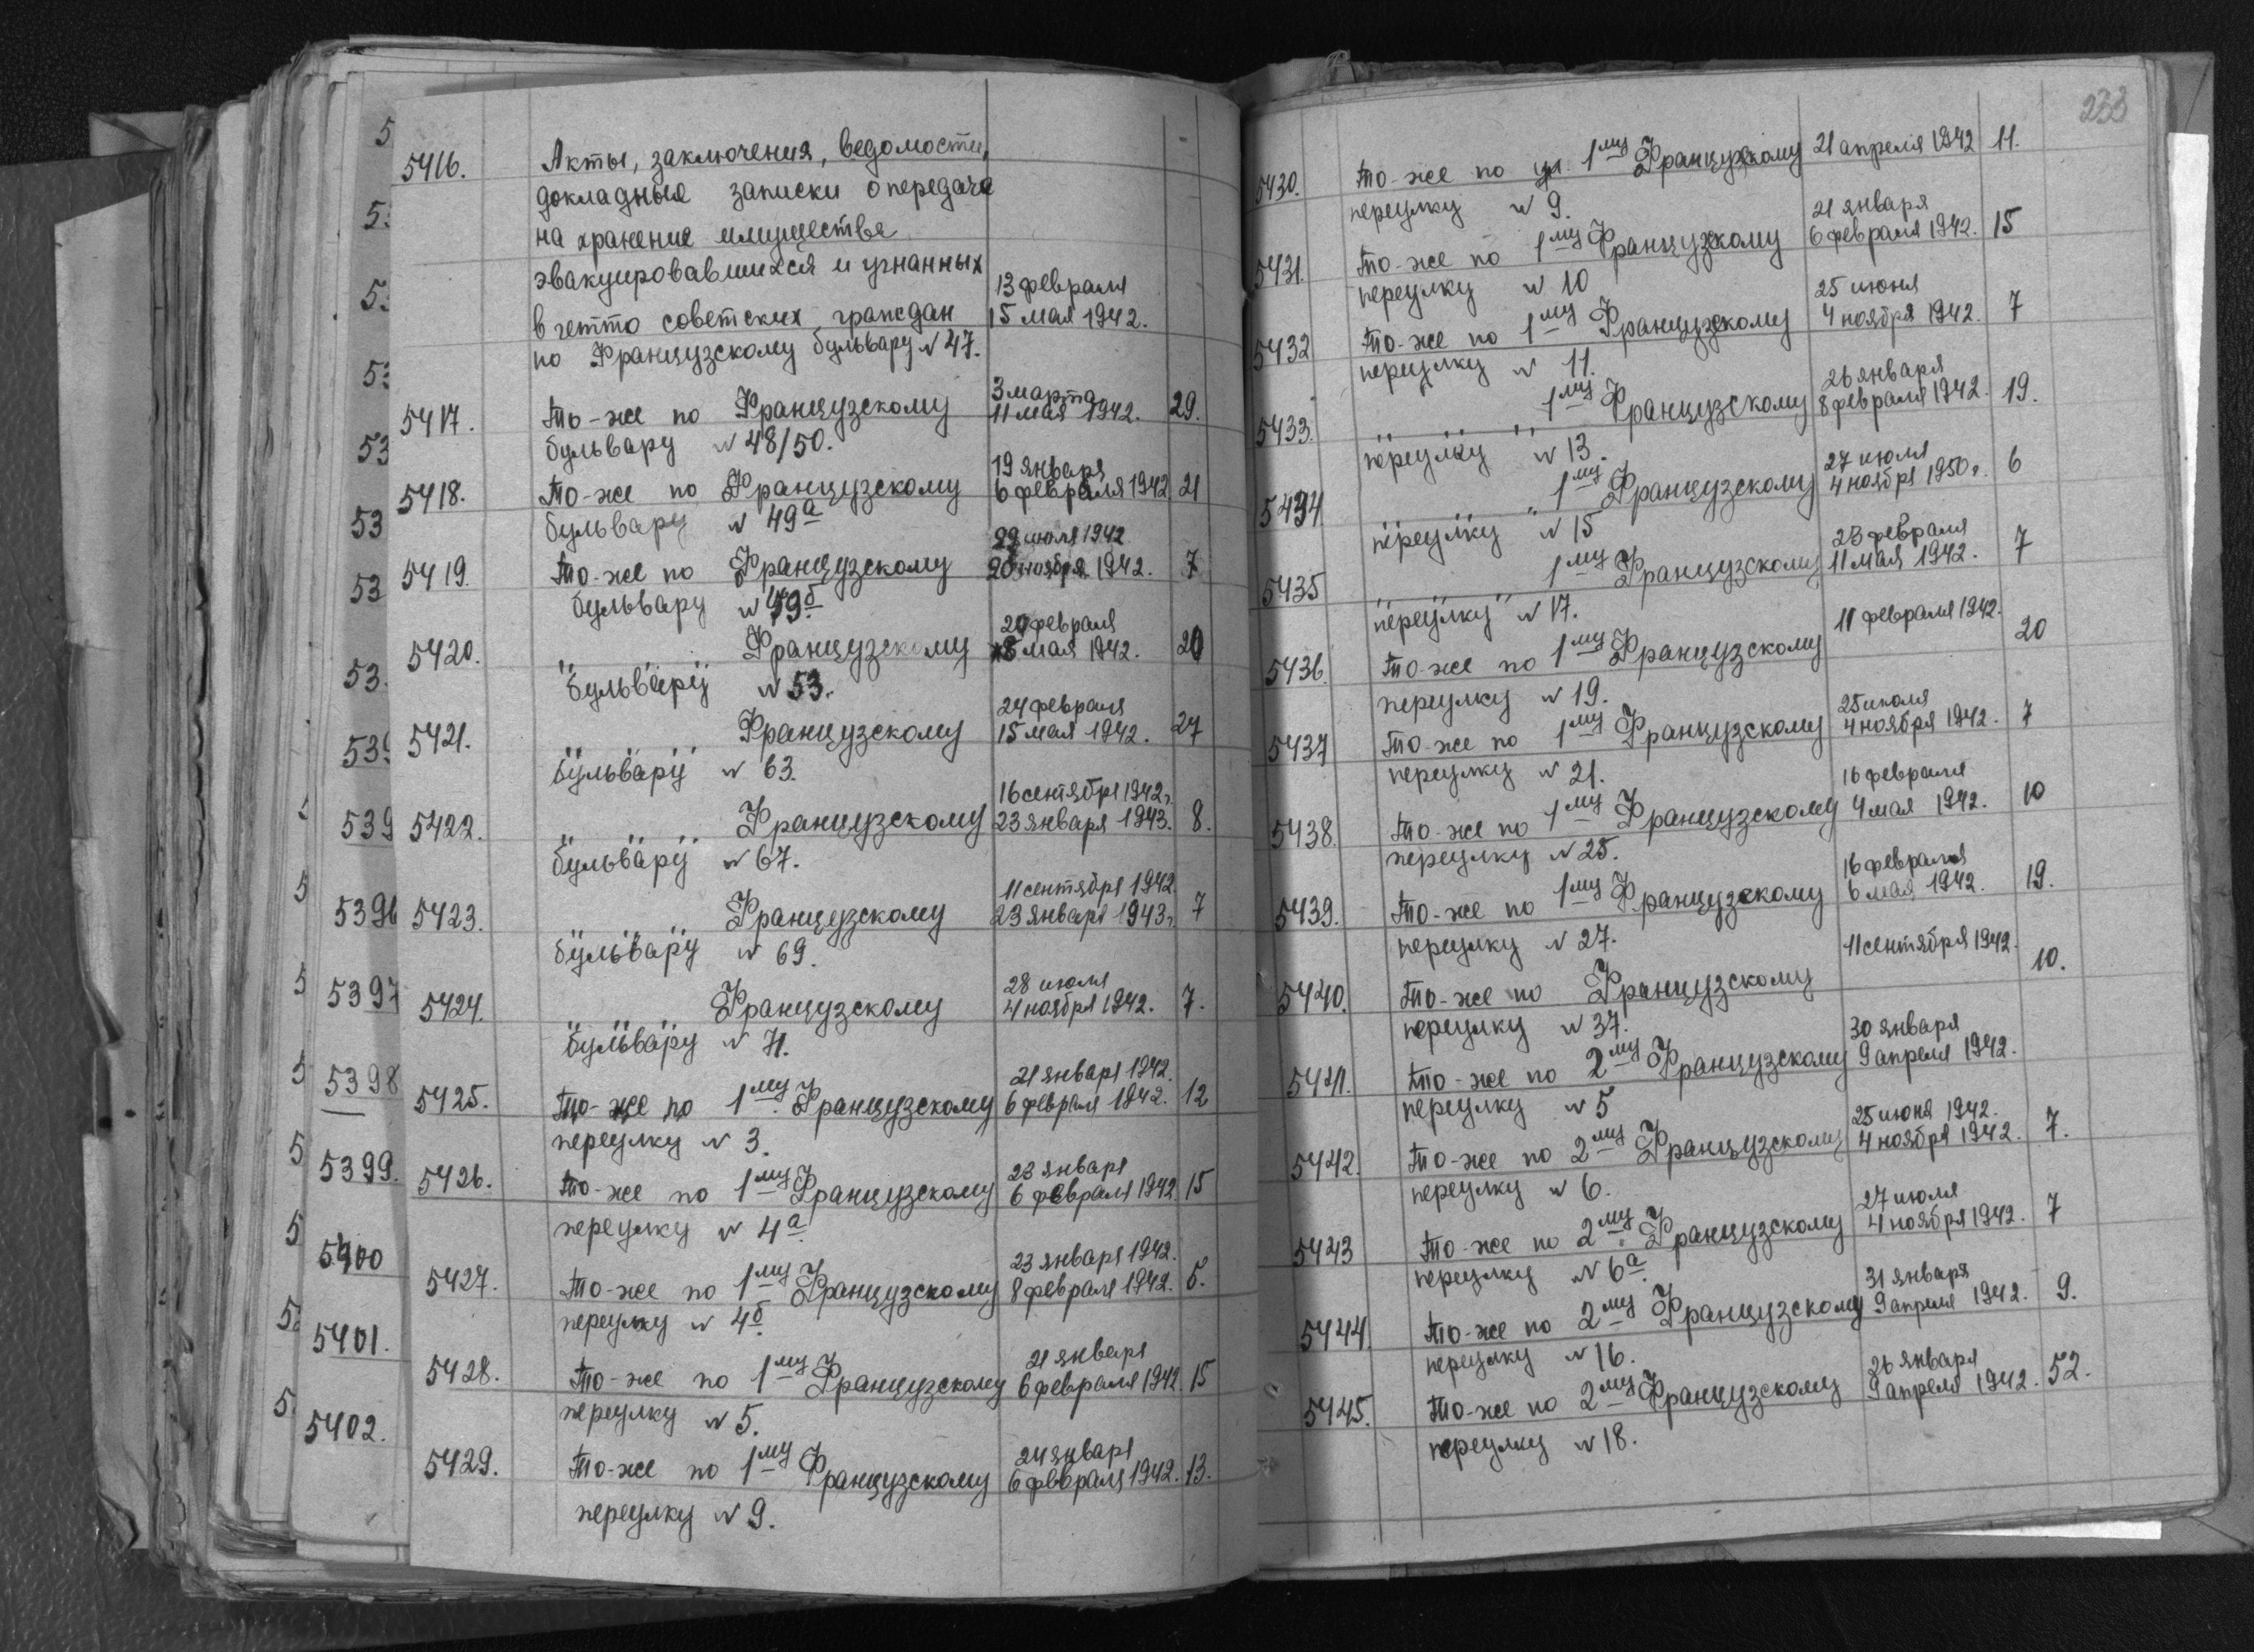 5416. Акты, заключения, ведомости,
докладные записки о передаче
на хранение имущества
эвакуировавшихся и угнанных
13 февраля
в гетто советских граждан 15 мая 1942.
по Французскому бульвару N 47.
3 марта
5417. То-же по Французскому 11 мая 1942. 29.
бульвару N 48/50.
19 января
5418. То-же по Французскому 6 февраля 1942 21
бульвару N 49а
29 июля 1942
5419. То-же по Французскому ноября 1942. 7
бульвару N 49б
февраля
5420. Французскому мая 1942. 20
" бульвару " N 53.
24 февраля
5421. Французскому 15 мая 1942. 27
бульвару N 63.
16 сентября 1942г.
5422. " " " Французскому 23 января 1943. 8.
бульвару N 67.
11 сентября 1942.
5423. " " " Французскому 23 января 1943г. 7
бульвару N 69.
28 июля
5424. Французскому 4 ноября 1942. 7.
бульвару N 71.
21 января 1942.
5425. То-же по 1му Французскому 6 февраля 1942. 12
переулку N 3.
23 января
5426. То-же по 1му Французскому 6 февраля 1942 15
переулку N 4а
23 января 1942.
5427. То-же по 1му Французскому 8 февраля 1942.
переулку N 4б
21 января
5428. То-же по 1му Французскому 6 февраля 1942. 15
переулку N 5.
24 января
5429. То-же по 1му Французскому 6 февраля 1942. 13.
переулку N 9.
5396
5397
5398
5399.
5400
5401.
5402.
233
5430. То-же по 1му Французскому 21 апреля 1942 11.
переулку N 9.
21 января
5431. То-же по 1му Французскому 6 февраля 1942. 15
переулку N 10
25 июня
5432 То-же по 1му Французскому 4 ноября 1942. 7
переулку N 11.
26 января
5433. " " " 1му Французскому 8 февраля 1942. 19.
переулку N 13.
27 июля
5434 " " " 1му Французскому 4 ноября 1950г. 6
переулку N 15
23 февраля
5435 " " " 1му Французскому 11 мая 1942. 7
переулку N 17.
11 февраля 1942.
5436. То-же по 1му Французскому 20
переулку N 19.
25 июля
5437 То-же по 1му Французскому 4 ноября 1942. 7
переулку N 21.
16 февраля
5438. То-же по 1му Французскому 4 мая 1942. 10
переулку N 25.
16 февраля
5439. То-же по 1му Французскому 6 мая 1942. 19.
переулку N 27.
11 сентября 1942.
5440. То-же по Французскому 10.
переулку N 37.
30 января
5441. То-же по 2му Французскому 9 апреля 1942.
переулку N 5
25 июня 1942.
5442. То-же по 2му Французскому 4 ноября 1942. 7.
переулку N 6.
27 июля
5443 То-же по 2му Французскому 4 ноября 1942. 7
переулку N 6а.
31 января
5444. То-же по 2му Французскому 9 апреля 1942. 9.
переулку N 16.
26 января
5445. То-же по 2му Французскому 9 апреля 1942. 52.
переулку N 18.